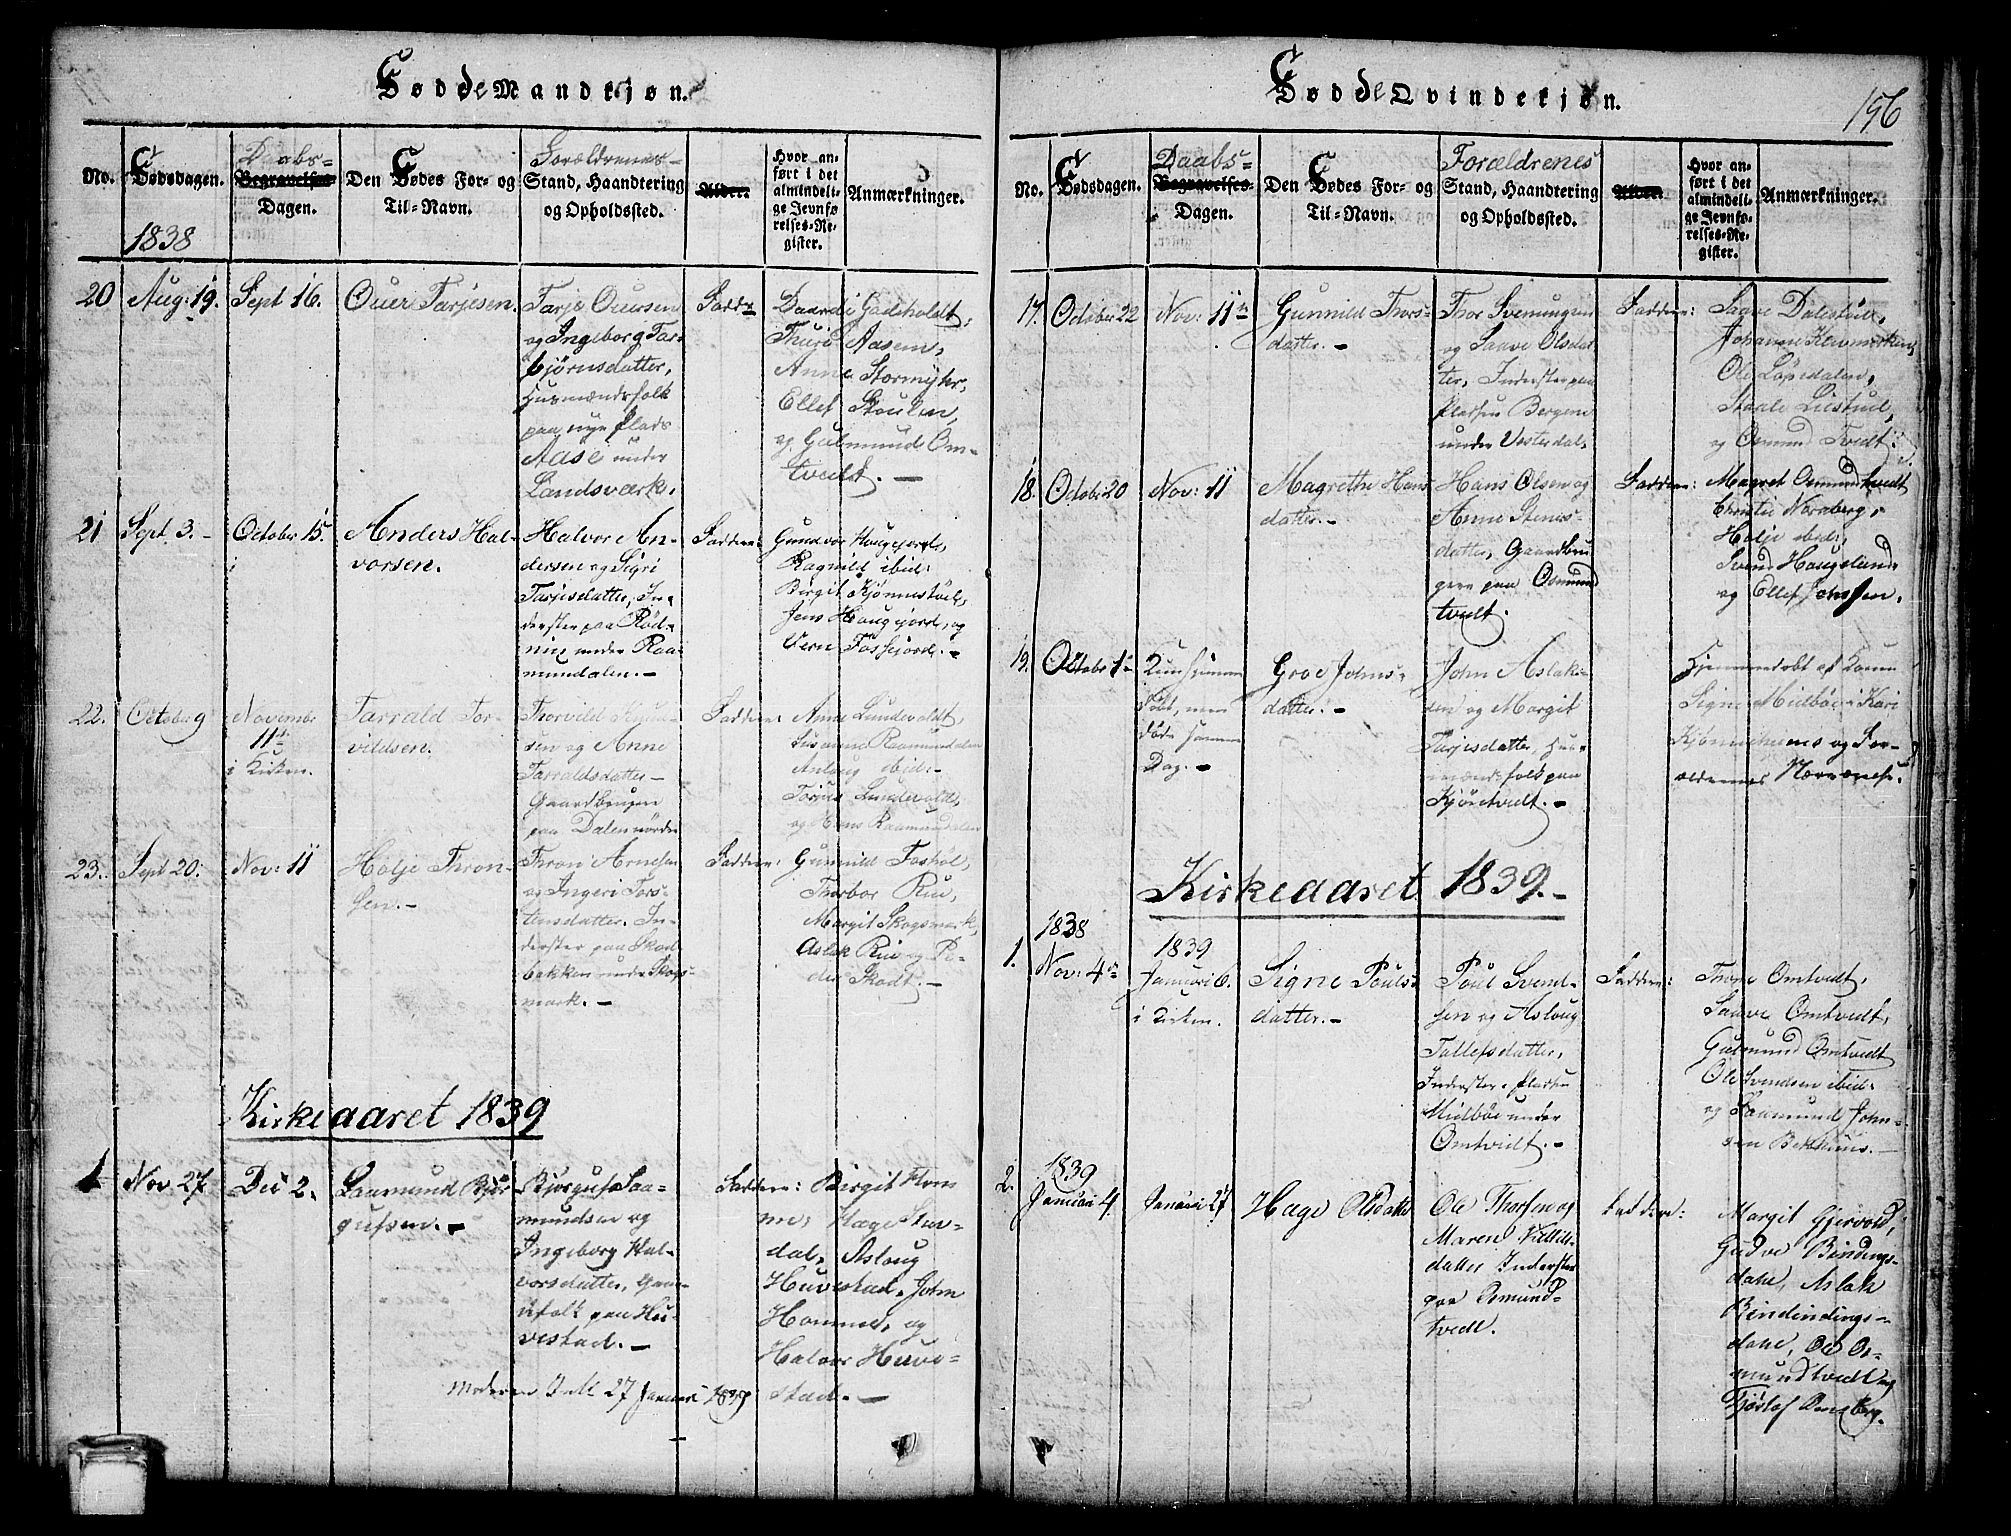 Fødde Mandkjøn.
No.
Fødsdagen.
1838
Daabs-
Begravelses-
Dagen.
Den Fødes For- og
Til-Navn.
Forældrenes
Stand, Haandtering
og Opholdssted.
Alder.
Hvor an-
ført i det
almindeli-
ge Jevnfø
relses-Re-
gister.
Anmærkninger.
20
Aug: 19.
Sept 16.
Ouer Tarjesen.
Tarje Ouersen
og Ingeborg Tar-
bjørnsdatter,
Husmændsfolk
paa nye Plads
Aase under
Landsværk.
Faddere
Gadeholdt,
Thurø Aasen,
Anne Stormyhr,
Ellef Stoulen,
og Gulmund Om-
tvedt. —
21
Sept. 3. -
October 15.
Anders Hal-
vorsen.
Halvor An-
dersen og Sigri
Tarjesdatter, In-
derster paa Rød-
under Raa-
mundalen. —
Faddere:
Gundvor Haugejord,
Ragnild ibid:
Birgit Kjønnestöel,
Jens Haugejord, og
Fossejord. -
22.
October 9
Novembr
11te
i Kirken.
Tarrald Tor-
vildsen.
Thorvild Knud-
sen og Anne
Tarraldsdatter —
Gaardbrugere
paa Dalen nørdre
Faddere:
Anne Lundevoldt,
Susanne Raamundalen
Aslaug ibid:
Lundevold,
og Hans Raamundalen
23.
Sept 20:
Nov: 11
Holje Thron-
sen. -
Thron Arnesen
og Ingeri Tors-
tensdatter. In-
derster paa Skod-
bakken under Skogs-
mark. —
Faddere:
Gunnild Foshol,
Thorbor Rui,
Margit Skogsmark,
Aslak Rui og Pe-
der Skodt. -
Kirkeaaret 1839
1
Nov. 27
Dec 2.
Saamund Bjør
gufsen. -
Bjørguf Saa-
mundsen og
Ingeborg Hal-
vorsdatter, Gaar-
folk paa Hu-
vestad. —
Moderen Intl. 27 Januar 1839
Faddere:
Birgit Hom
me, Hæge
dal, Aslaug
Huvestad, John
Homme, og
Halvor Huve-
stad. —
Fødde Qvindekjøn.
196
No.
Fødsdagen.
Daabs-
Begravelses-
Dagen.
Den Fødes For- og
Til-Navn.
Forældrenes
Stand, Haandtering
og Opholdssted.
Alder.
Hvor an-
ført i det
almindeli-
ge Jevnfø-
relses-Re-
gister.
Anmærkninger.
17.
October 22
Nov: 11te
Gunnild Thors-
datter. -
Thor Svenungsen
og Saave Olsdat
ter, Inderster paa
Pladsen Bergene
under Vesterdal,
Faddere:
Saave Dalestøil,
Johanne
Ole Løpedalen,
Staale Liestuel,
og Osmund Tvedt.
18.
Octobr 20
Nov: 11
Magrethe Hans
datter. -
Hans Olsen og
Anne Stenes-
datter, Gaardbru
gere paa Osmund
tvedt.
Faddere:
Magret Osmundtvedt
Christie Norsberg,
Holje ibid:
Svend Haugeland
og Ellef Johnsen.
19.
Octobr 1te
født, men
døde samme
Dag. -
Groe Johns-
datter. -
John Aslak-
sen og Margit
Tarjesdatter, Hus-
mændsfolk paa
Kjøretvedt. -
Hjemmedøbt af Konen
Signe Midbøe, Kari
Kjønneheims og For-
ældrenes Nærværelse.
Kirkeaaret 1839. -
1.
1838
Nov: 4de
1839
Januari 6.
i Kirken.
Signe Pouls-
datter. -
Poul Svend-
sen og Aslaug
Tallefsdatter,
Inderster, Pladsen
Midbøe under
Omtvedt. -
Faddere:
Thone Omtvedt,
Saave Omtvedt,
Gulmund Omtvedt
Ole Svendsen ibid:
og Saamund John-
sen Bekhuus. -
2.
1839
Januari 4.
Januari 27
Hæge Olsdatter
Ole Thorsen og
Maren Nillis-
datter Inderster
paa Osmund-
tvedt.
Faddere:
Margit Gjervold,
Gudve Bindings-
dahl, Aslak
Bindindings-
dahl, Ole Os-
mundtvedt og
Tjøstof